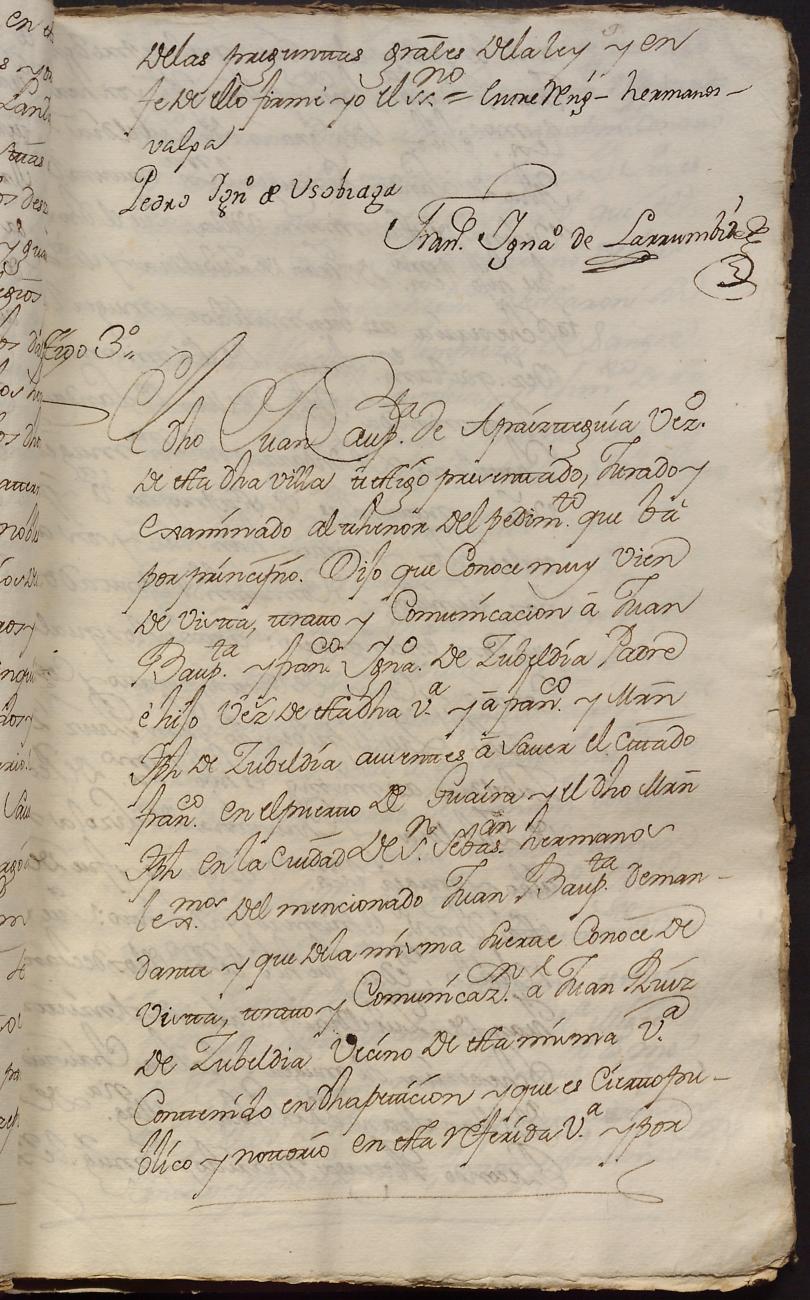 delas preguntas gräles dela ley y en
fe de ello firmé yo el ss.no = Entre Reng.s – hermanos –
valga
Pedro Ign.o de Usobiaga
Fran.co Igna.o de Larrumbide
Ttigo 3.o
El dho Juan Baup.ta de Apaizteguia Vez.o
de esta dha villa ttigo presentado, Jurado y
examinado al thenor del pedim.to que bá
por principio. Dijo que Conoce muy vien
de vista, trato y Comunicacion á Juan
Baup.ta y fran.co Igna.o de Zubeldia Padre
é hijo Vez.s de esta dha V.a y á fran.co y Mrñ
Jph de Zubeldia ausentes á saver el Citado
fran.co en el puerto de Guaira y el dho Mrñ
Jph en la Ciudad de S.n Sebas.an hermanos
lex.mos del mencionado Juan Baup.ta deman-
dante y que dela misma suerte Conoce de
Vista, trato y Comunicaz.n á Juan Ruiz
de Zubeldia Vecino de esta misma V.a
Contenido en dha peticion y que es Cierto pu-
blico y nottorio en esta referida V.a y por